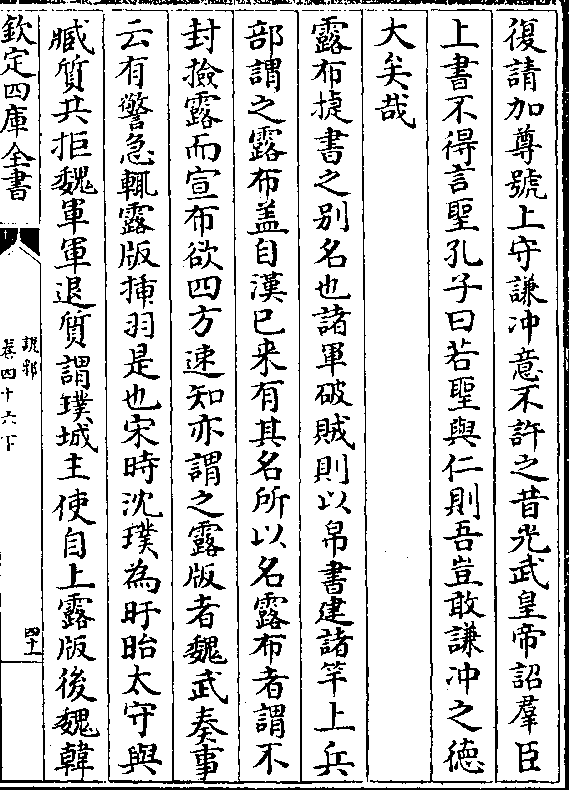 復請加尊號上守謙冲意不許之昔光武皇帝詔羣臣
上書不得言聖孔子曰若聖與仁則吾豈敢謙冲之徳
大矣哉
露布捷書之别名也諸軍破賊則以帛書建諸竿上兵
部謂之露布盖自漢已来有其名所以名露布者謂不
封撿露而宣布欲四方速知亦謂之露版者魏武奏事
云有警急輒露版揷羽是也宋時沈璞為盱眙太守與
臧質共拒魏軍軍退質謂璞城主使自上露版後魏韓
欽定四庫全書
説郛
卷四十六下
四十一